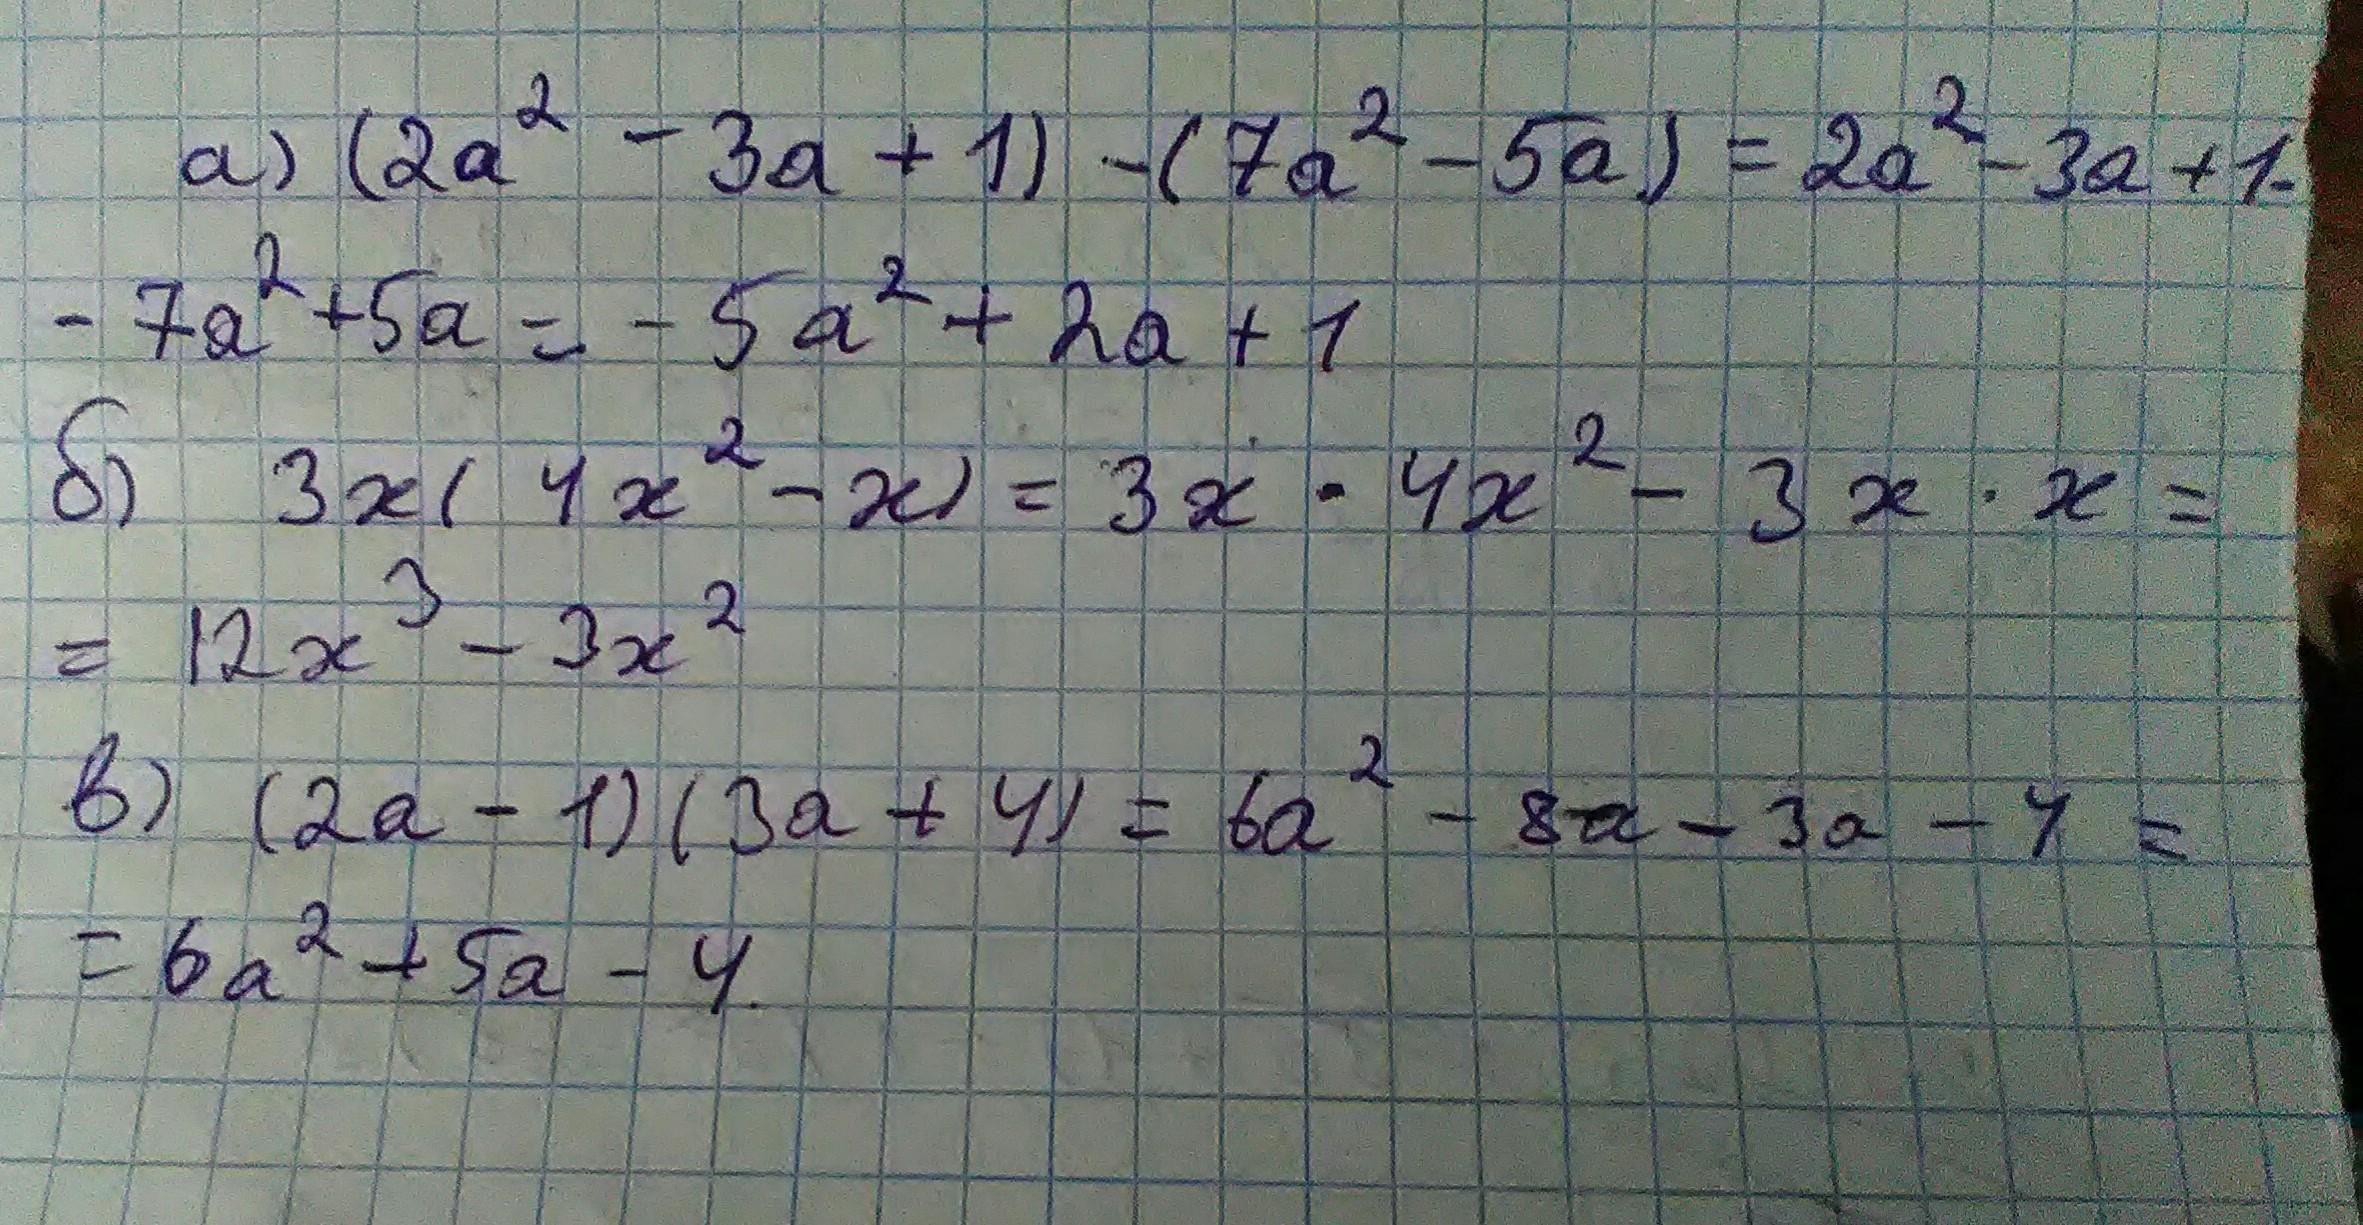 а) (2a² - 3a + 1) - (7a² - 5a) = 2a² - 3a + 1 -
- 7a² + 5a = - 5a² + 2a + 1
б) 3x( 4x² - x) = 3x · 4x² - 3x · x =
= 12x³ - 3x²
в) (2a - 1)(3a + 4) = 6a² - 8a - 3a - 4 =
= 6a² + 5a - 4.